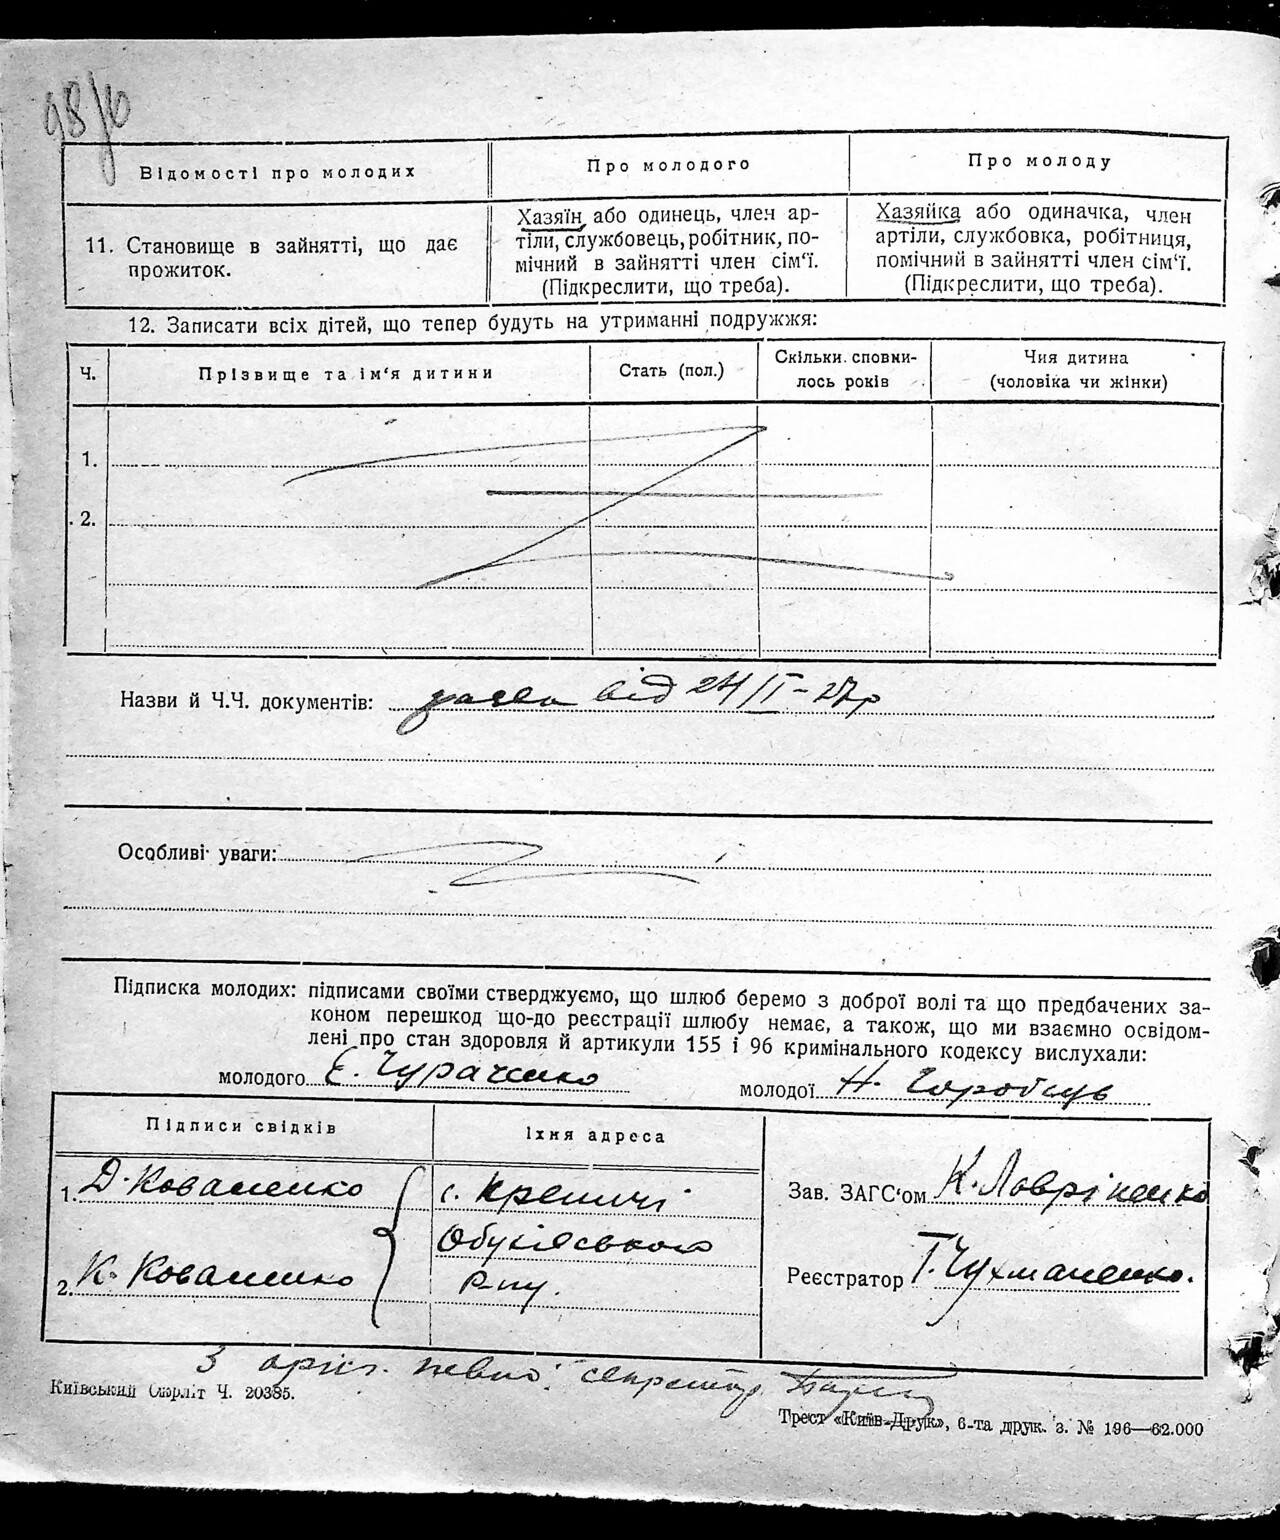 98/б
Відомості про молодих
Про молодого
Про молоду
11. Становище в зайнятті, що дає
прожиток.
Хазяїн або одинець, член ар-
тіли, службовець, робітник, по-
мічний в зайнятті член сім'ї.
(Підкреслити, що треба).
Хазяйка або одиначка, член
артіли, службовка, робітниця,
помічний в зайнятті член сім'ї.
(Підкреслити, що треба).
12. Записати всіх дітей, що тепер будуть на утриманні подружжя:
Ч.
Прізвище та ім'я дитини
Стать (пол.)
Скільки сповни-
лось років
Чия дитина
(чоловіка чи жінки)
1.
2.
Назви й Ч.Ч. документів: заява від 24/II-27р
Особливі уваги:
Підписка молодих: підписами своїми стверджуємо, що шлюб беремо з доброї волі та що предбачених за-
коном перешкод що-до реєстрації шлюбу немає, а також, що ми взаємно освідом-
лені про стан здоровля й артикули 155 і 96 кримінального кодексу вислухали:
молодого Є. Чураченко
молодої Н. Горобець
Підписи свідків
Їхня адреса
1. Д. Коваленко
2. К. Коваленко
с. Креничі
Обухівського
р-ну.
Зав. ЗАГС'ом К. Лавріненко
Реєстратор Г. Чухманенко.
З оригін. певно: секретар
Київський Окрліт Ч. 20385.
Трест «Київ-Друк», 6-та друк. з. № 196—62.000